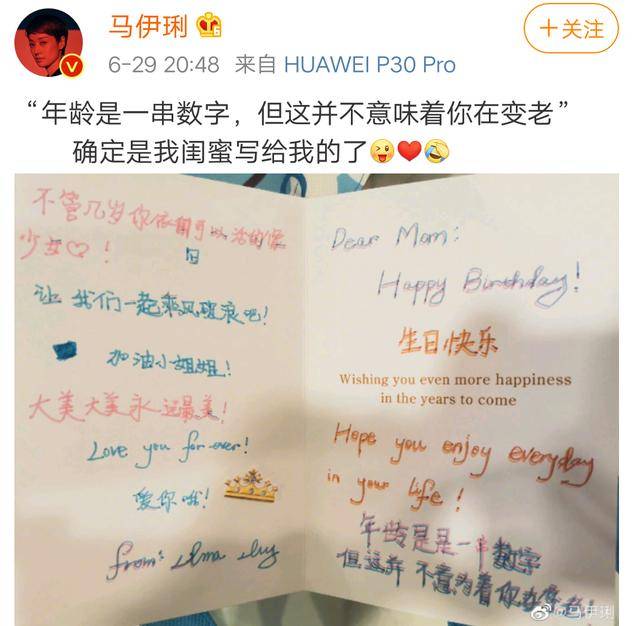 马伊琍
6-29 20:48 来自 HUAWEI P30 Pro
+关注
“年龄是一串数字，但这并不意味着你在变老”
确定是我闺蜜写给我的了
不管几岁你依旧可以活的像
少女♡！
让我们一起乘风破浪吧！
加油小姐姐！
大美大美永远最美！
Love you for ever!
爱你哦！
from:
Dear Mom:
Happy Birthday!
生日快乐
Wishing you even more happiness
in the years to come
Hope you enjoy everyday
in your life!
年龄是是一串数字
但这并不意为着你在变老!
@马伊琍